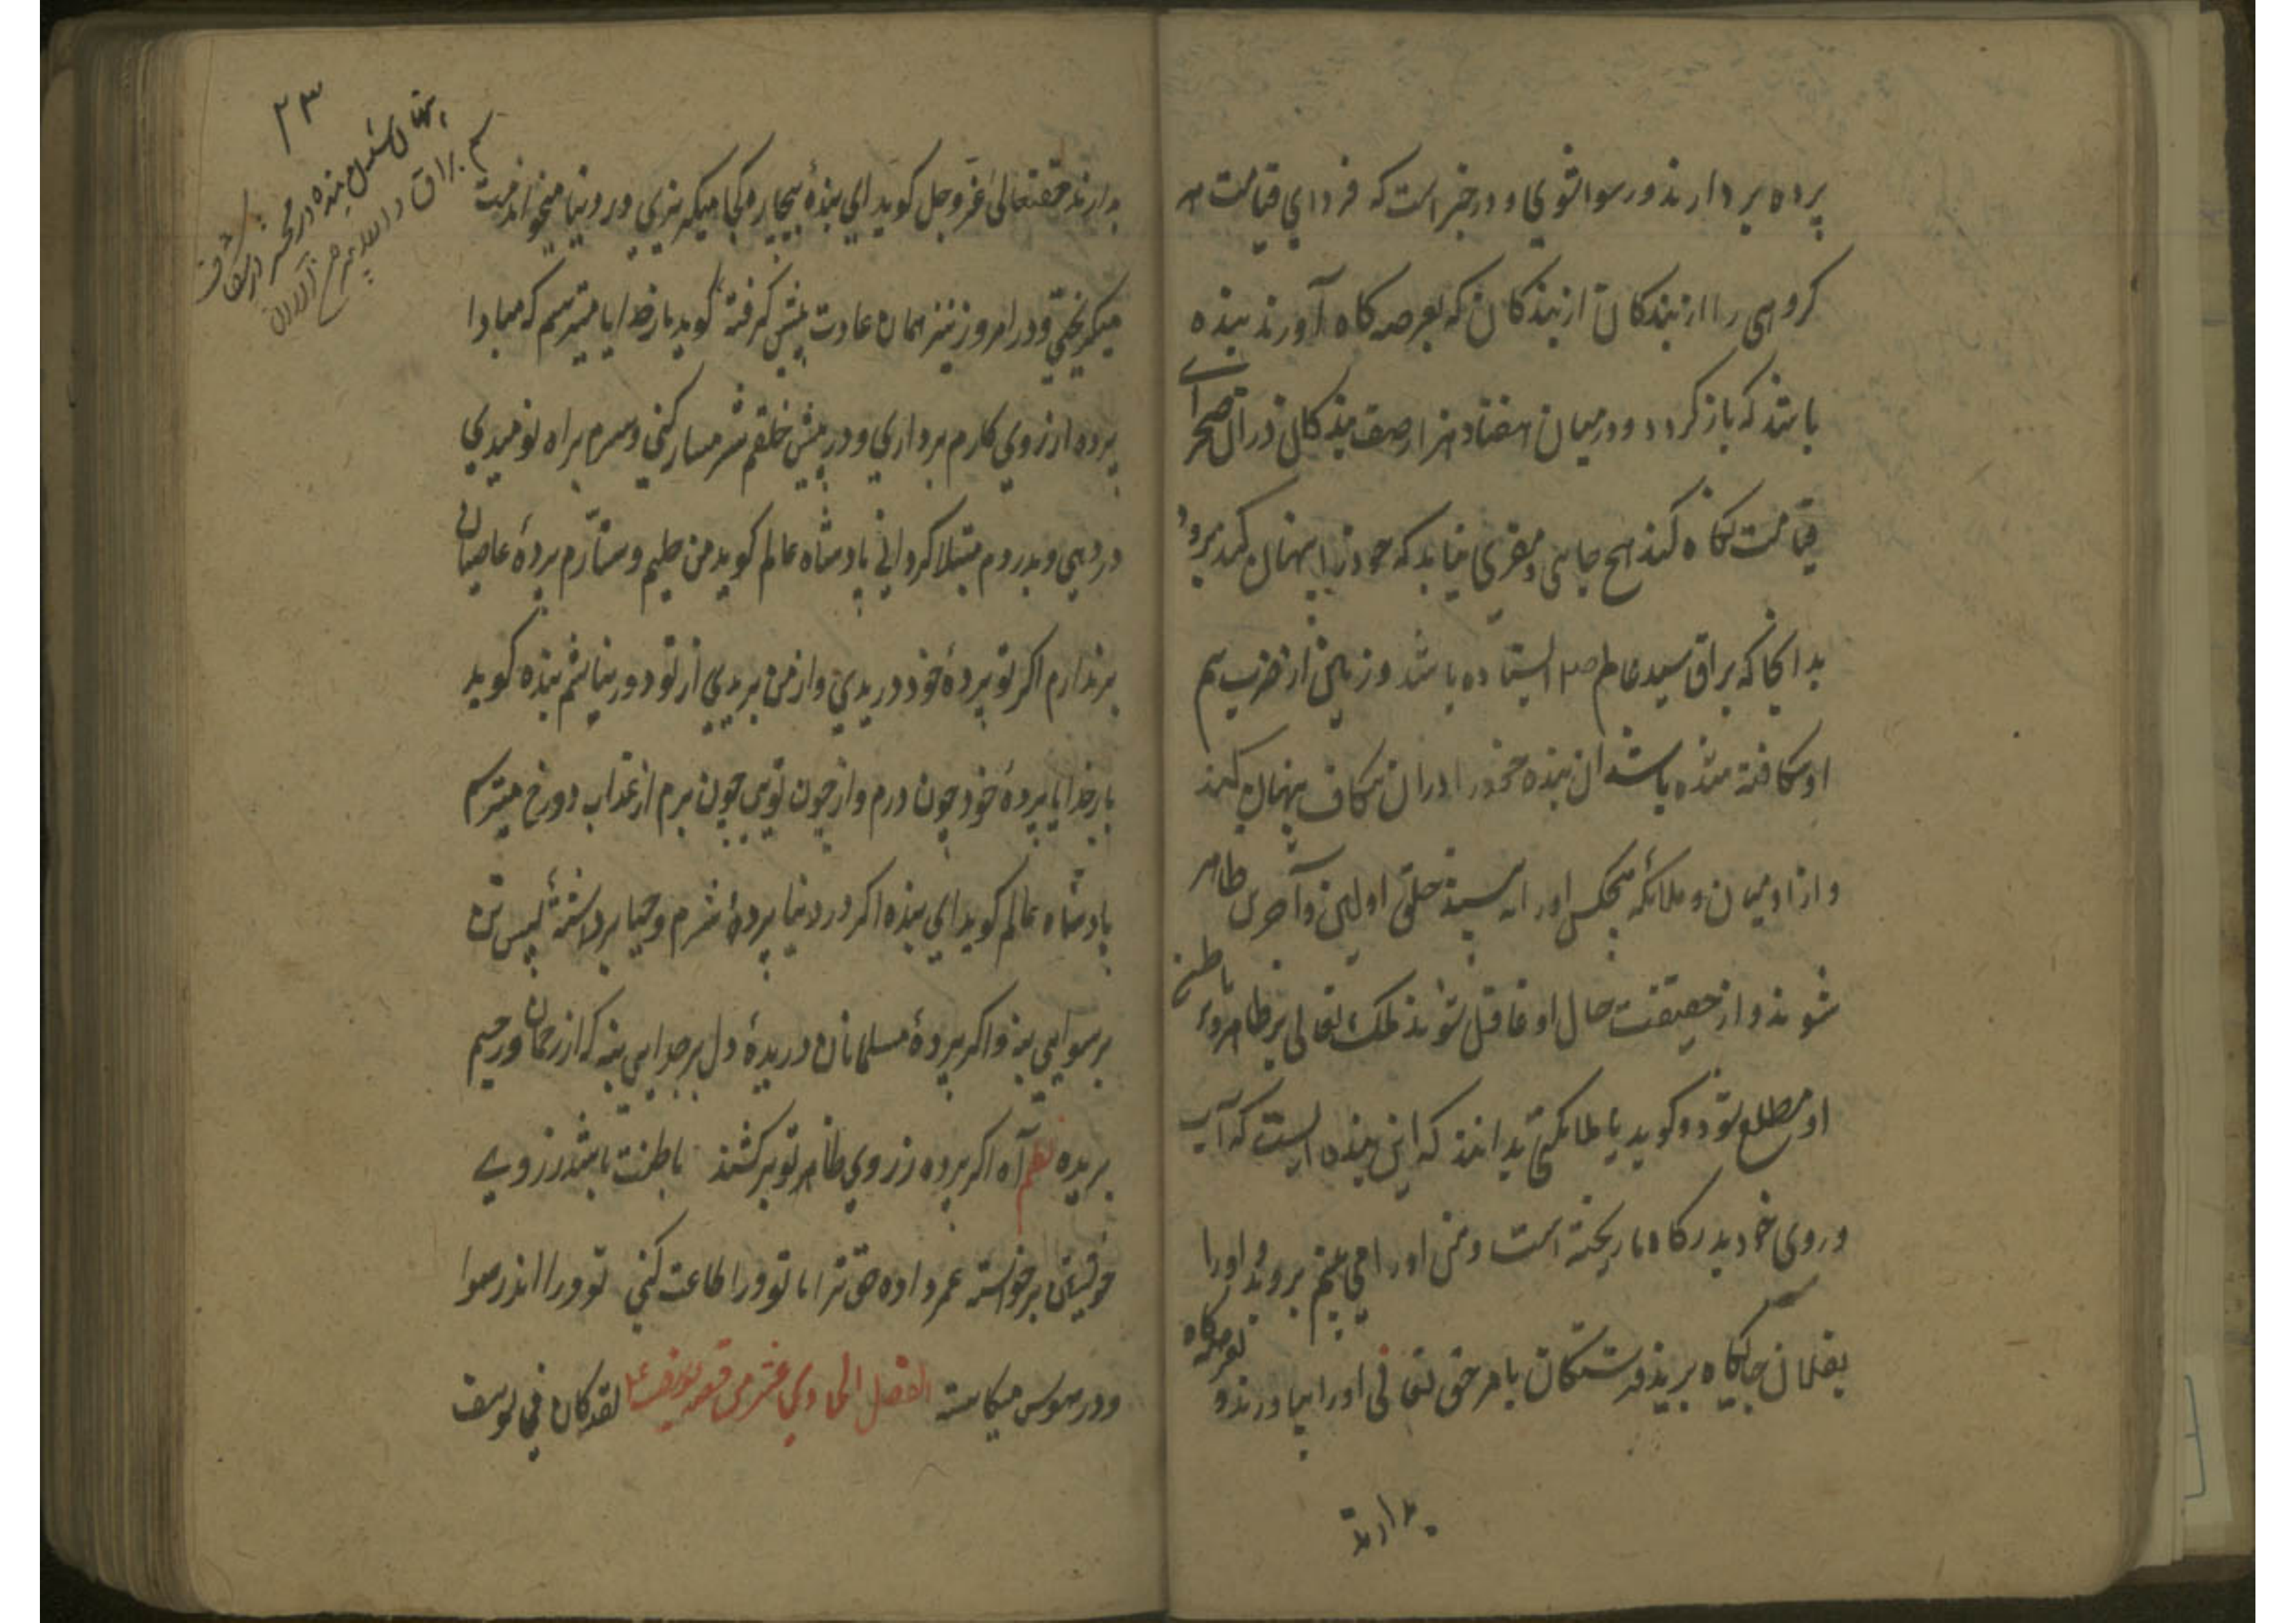 پرده بردارند و رسوا شوی و در خبر است که فردای قیامت هر
کروهی را از بندکان از بندکان که بعرصه کاه آورند بنده
باشد که باز کردد و در میان هفتاد هزار صف بندکان در آن صحرای
قیامت نکاه کند هیچ جایی و مفری نیابد که خود را پنهان کند برود
بدانجا که براق سید عالم ص م ایستاده باشد و زمین از ضرب سم
او شکافته شده باشد آن بنده خود را در آن شکاف پنهان کند
و از آدمیان و ملائکه هیچکس او را نه بیند خلق اولین و آخرین ظاهر
شوند و از حقیقت حال او غافل شوند ملک تعالی بر ظاهر و باطن
او مطلع بود و کوید یا ملائکتی بدانند که این بنده ایست که آب
و روی خود بدرکاه ما ریخته است و من او را می بینم بروند و او را
بفلان جایکاه برید فرشتکان بامر حق تعالی او را بیاورند و بعرصه کاه
بدارند
۲۳
پنهان شدن بنده در محشر در شکاف
سم براق
بدارند حقتعالی عز و جل کوید ای بنده بیچاره کجا میکریزی و در دنیا میخواندمت
میکریختی و در امروز نیز همان عادت پیش کرفته کوید بار خدایا میترسم که مبادا
پرده از روی کارم برداری و در پیش خلقم شرمسار کنی و سرم براه نومیدی
در دهی و بدردم مبتلا کردانی پادشاه عالم کوید من حلیم و ستارم پرده عاصیان
بر ندارم اکر تو پرده خود دریدی و از من بریدی از تو دور نباشم بنده کوید
بار خدایا پرده خود چون درم و از چون تویی چون برم از عذاب دوزخ میترسم
پادشاه عالم کوید ای بنده اکر در دنیا پرده شرم و حیا برداشته پس تن
برسوایی بنه و اکر پرده مسلمانان دریده دل بر جدایی بنه که از رحمان و رحیم
بریده نظم آه اکر پرده ز روی ظاهر تو برکشند باطنت باشد ز روی
خویشتن برخواسته عمر داده حق ترا تا تو ورا طاعت کنی تو ورا اندر هوا
و در هوس میکاسته الفصل الحادی عشر من قصه یوسف ع لقد کان فی یوسف